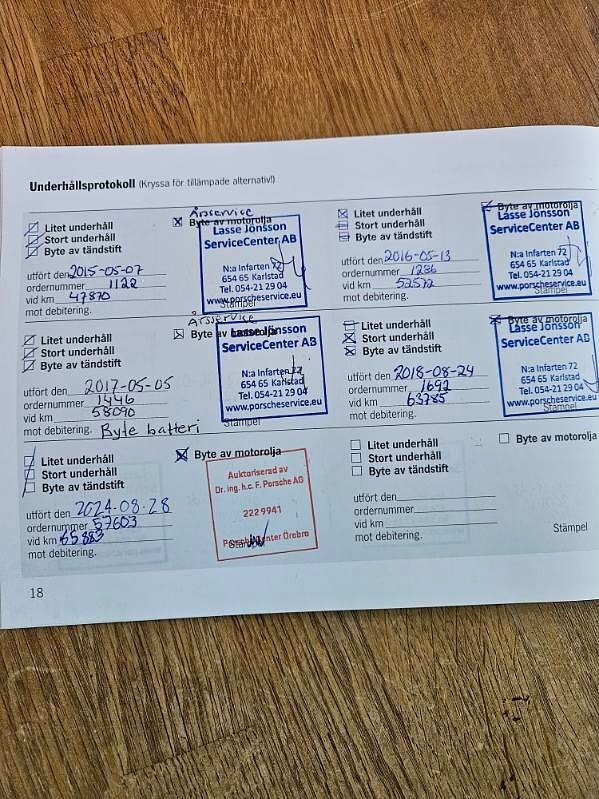 Underhållsprotokoll (Kryssa för tillämpade alternativ!)
Årsservice
Litet underhåll
Byte av motorolja
Stort underhåll
Byte av tändstift
utfört den 2015-05-07
ordernummer 1122
vid km 47870
mot debitering.
Lasse Jönsson
ServiceCenter AB
N:a Infarten 72
654 65 Karlstad
Tel. 054-21 29 04
www.porscheservice.eu
Stämpel
Litet underhåll
Byte av motorolja
Stort underhåll
Byte av tändstift
utfört den 2016-05-13
ordernummer 1286
vid km 52572
mot debitering.
Lasse Jönsson
ServiceCenter AB
N:a Infarten 72
654 65 Karlstad
Tel. 054-21 29 04
www.porscheservice.eu
Stämpel
Årsservice
Litet underhåll
Byte av motorolja
Stort underhåll
Byte av tändstift
utfört den 2017-05-05
ordernummer 1446
vid km 58090
mot debitering. Byte batteri
Lasse Jönsson
ServiceCenter AB
N:a Infarten 72
654 65 Karlstad
Tel. 054-21 29 04
www.porscheservice.eu
Stämpel
Litet underhåll
Byte av motorolja
Stort underhåll
Byte av tändstift
utfört den 2018-08-24
ordernummer 1692
vid km 63785
mot debitering.
Lasse Jönsson
ServiceCenter AB
N:a Infarten 72
654 65 Karlstad
Tel. 054-21 29 04
www.porscheservice.eu
Stämpel
Litet underhåll
Byte av motorolja
Stort underhåll
Byte av tändstift
utfört den 2024-08-28
ordernummer 57603
vid km 65883
mot debitering.
Auktoriserad av
Dr. ing. h.c. F. Porsche AG
222 9941
Porsche Center Örebro
Stämpel
Litet underhåll
Byte av motorolja
Stort underhåll
Byte av tändstift
utfört den
ordernummer
vid km
mot debitering.
Stämpel
18